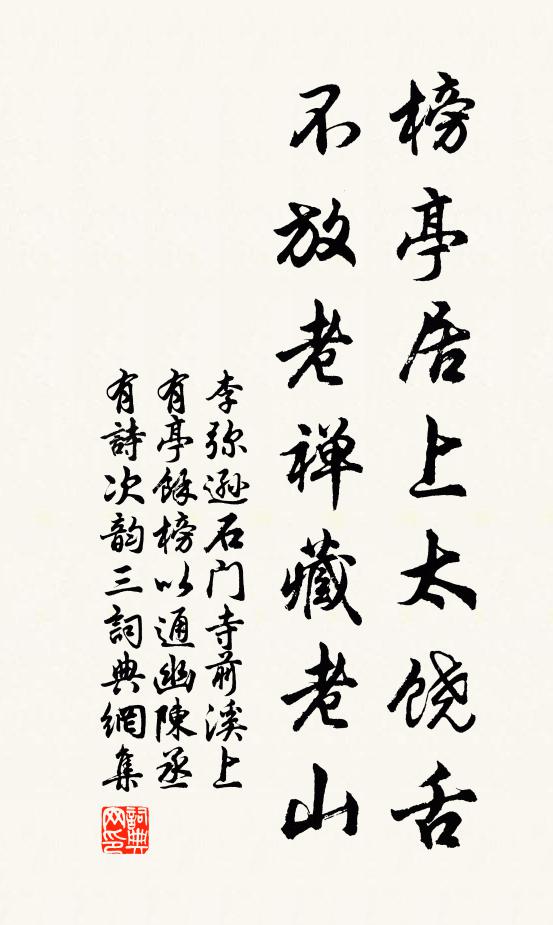 榜亭居上太饶舌
不放老禅藏老山
李弥逊石门寺前溪上
有亭馀榜以通幽陳丞
有詩次韵三詞典網集
詞典
网印